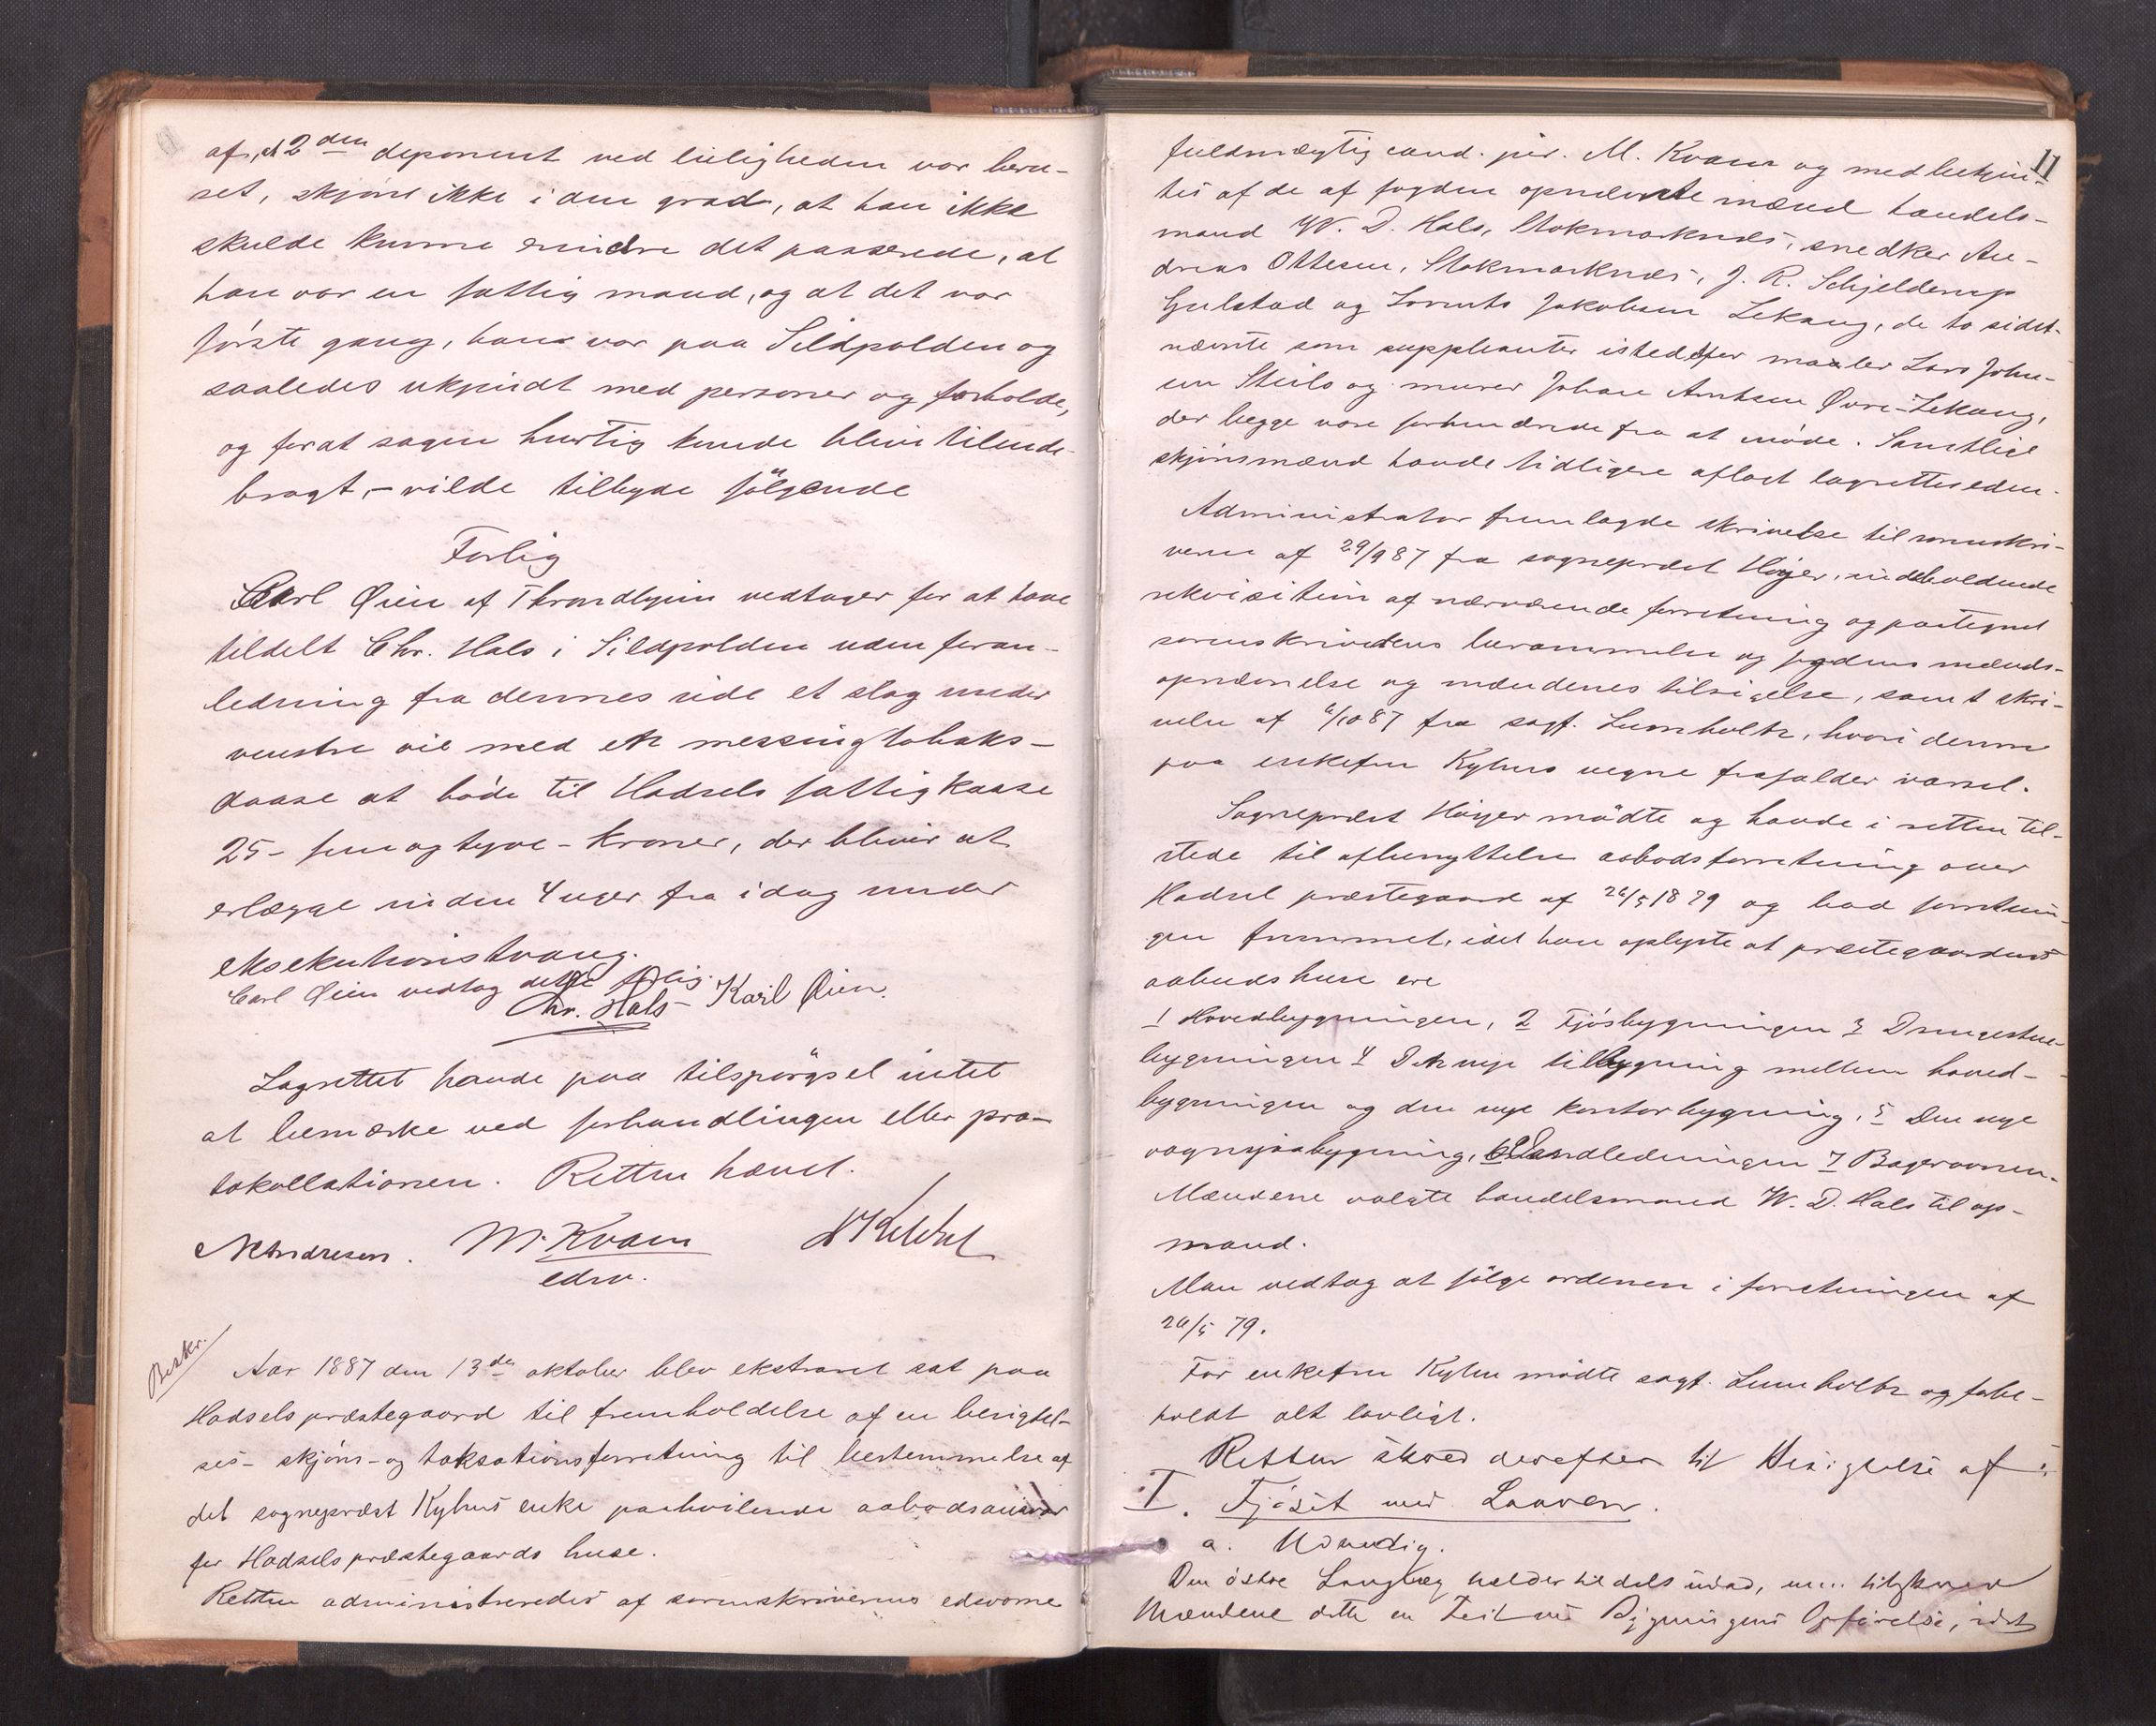 af, at 2den deponent ved leiligheden var beru-
set, skjønt ikke i den grad, at han ikke
skulde kunne erindre det passerede, at
han var en fattig mand, og at det var
første gang, han var paa Sildpolden og
saaledes ukjendt med personer og forholde,
og forat sagen hurtig kunde blive tilende-
bragt, – vilde tilbyde følgende
Forlig
Carl Øien af Throndhjem vedtager for at have
tildelt Chr. Hals i Sildpolden uden foran-
ledning fra dennes side et slag under
venstre øie med en messingtobaks-
daase at bøde til Hadsels fattigkasse
25 – fem og tyve – kroner, der bliver at
erlægge inden 4 uger fra idag under
eksekutionstvang.
Carl Øien vedtog dette forlig.
Chr. Hals – Karl Øien.
Lagrettet havde paa tilspørgsel intet
at bemærke ved forhandlingen eller pro-
tokollationen. Retten hævet.
N Andresen. M. Kvam
edsv.
Beskr.
Aar 1887 den 13de oktober blev ekstraret sat paa
Hadsels præstegaard til fremholdelse af en besigtel-
ses- skjøns- og taksationsforretning til bestemmelse af
det sogneprest Kyhns enke paahvilende aabodsansvar
for Hadsels præstegaards huse.
Retten administreredes af sorenskriverens edsvorne
11
fuldmægtig cand. jur. M. Kvam og medbetjen-
tes af de af fogden opnævnte mænd handels-
mand W. D. Hals, Stokmarknes, snedker An-
dreas Ottesen, Stokmarknes, J. R. Schjelderup
Gulstad og Lorents Jakobsen Lekang, de to sidst-
nævnte som suppleanter istedetfor maler Lars John-
sen Steilo og murer Johan Arntsen Øvre-Lekang,
der begge vare forhindrede fra at møde. Samtlige
skjønsmænd havde tidligere aflagt lagrettesseden.
Administrator fremlagde skrivelse til sorenskri-
veren af 29/9 87 fra sogneprest Høyer, indeholdende
rekvisition af nærværende forretning og paategnet
sorenskriverens berammelse og fogdens mænds-
opnævnelse og mændenes tilsigelse, samt skri-
velse af /10 87 fra sagf. Lumholtz, hvori denne
paa enkefru Kyhns vegne frafalder varsel.
Sogneprest Høyer mødte og havde i retten til-
stede til afbenyttelse aabodsforretning over
Hadsel præstegaard af 26/5 1879 og bad forretnin-
gen fremmet, idet han oplyste at præstegaardens
aabodshuse ere
1 Hovedbygningen, 2 Fjøsbygningen 3 Drengestue-
bygningen 4 Den nye tilbygning mellem hoved-
bygningen og den nye kontorbygning, 5 Den nye
vognskjaabygning, 6 Vandledningen 7 Bagerovnen.
Mændene valgte handelsmand W. D. Hals til op-
mand.
Man vedtog at følge ordenen i forretningen af
26/5 79.
For enkefru Kyhn mødte sagf. Lumholtz og forbe-
holdt alt lovligt.
Retten skred derefter til Besigtelse af:
I. Fjøset med Laaven.
a. Udvendig.
Den østre Langvæg helder tildels indad, men tilskrev
Mændene dette en Feil ved Bygningens Opførelse, idet